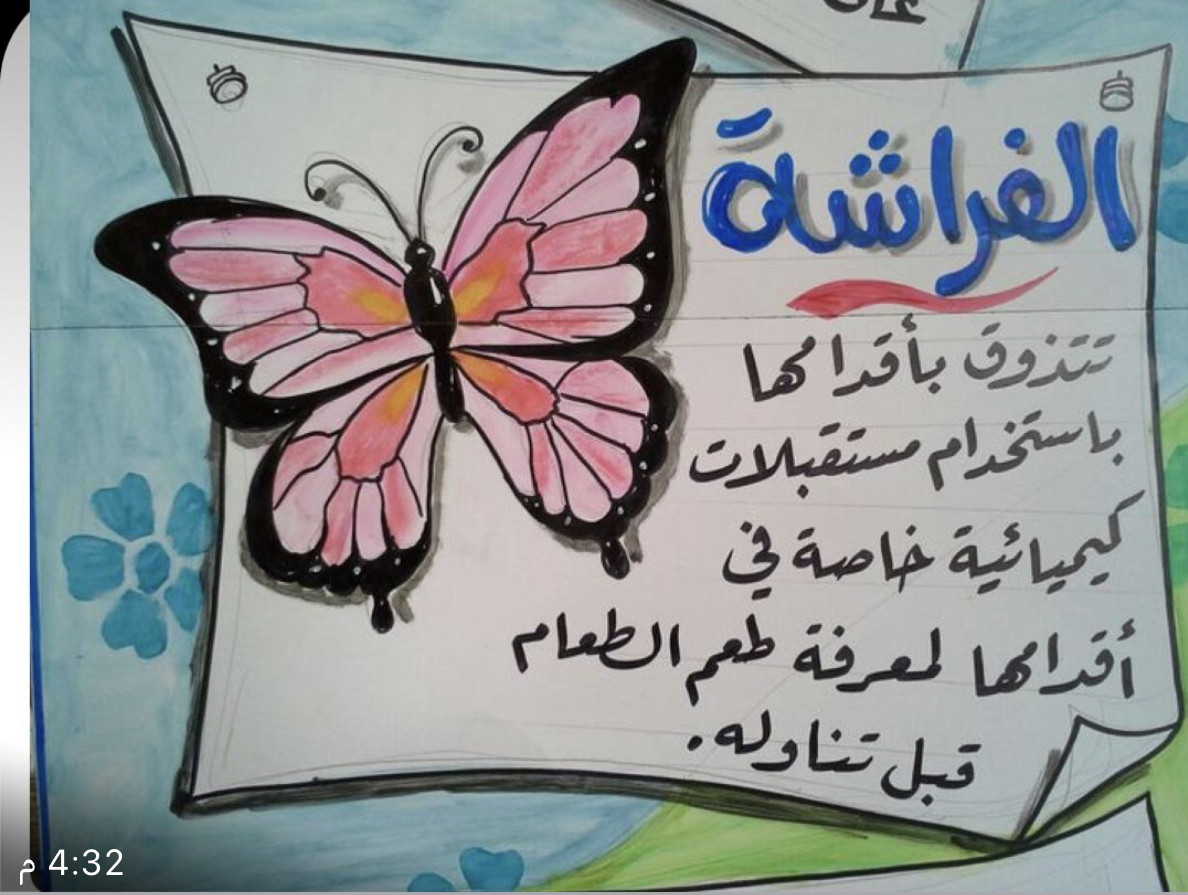 الفراشة
تتذوق بأقدامها
باستخدام مستقبلات
كيميائية خاصة في
أقدامها لمعرفة طعم الطعام
قبل تناوله.
4:32 م